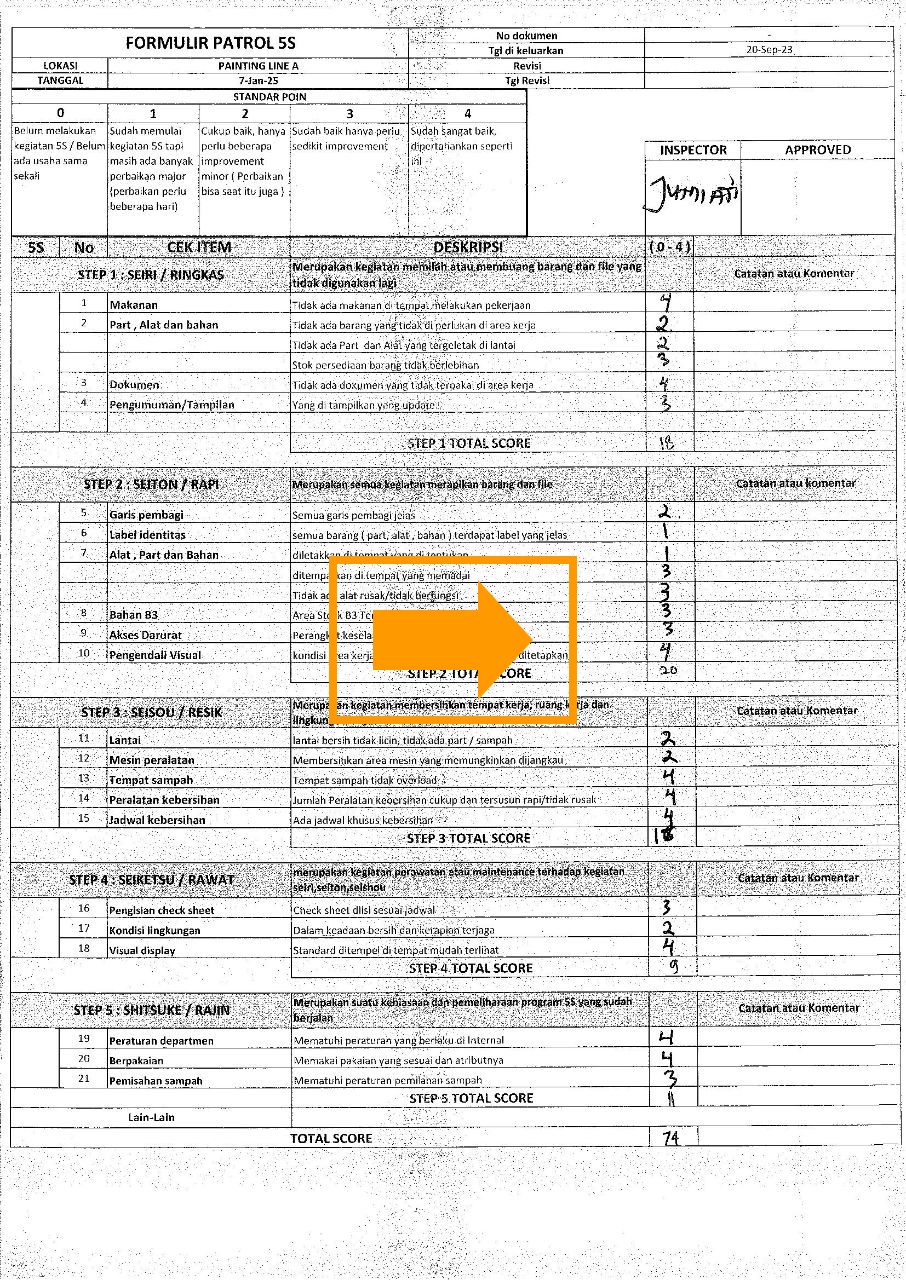 FORMULIR PATROL 5S
No dokumen -
Tgl di keluarkan 20-Sep-23
LOKASI PAINTING LINE A Revisi
TANGGAL 7-Jan-25 Tgl Revisi
STANDAR POIN
0 1 2 3 4
Belum melakukan kegiatan 5S / Belum ada usaha sama sekali
Sudah memulai kegiatan 5S tapi masih ada banyak perbaikan major (perbaikan perlu beberapa hari)
Cukup baik, hanya perlu beberapa improvement minor ( Perbaikan bisa saat itu juga )
Sudah baik hanya perlu sedikit improvement
Sudah sangat baik, dipertahankan seperti ini
INSPECTOR APPROVED
JUMIATI
5S No CEK ITEM DESKRIPSI ( 0 - 4 )
STEP 1 : SEIRI / RINGKAS Merupakan kegiatan memilah atau membuang barang dan file yang tidak digunakan lagi Catatan atau Komentar
1 Makanan Tidak ada makanan di tempat melakukan pekerjaan 4
2 Part , Alat dan bahan Tidak ada barang yang tidak di perlukan di area kerja 2
Tidak ada Part dan Alat yang tergeletak di lantai 2
Stok persediaan barang tidak berlebihan 3
3 Dokumen Tidak ada dokumen yang tidak terpakai di area kerja 4
4 Pengumuman/Tampilan Yang di tampilkan yang update 3
STEP 1 TOTAL SCORE 18
STEP 2 : SEITON / RAPI Merupakan semua kegiatan merapikan barang dan file Catatan atau komentar
5 Garis pembagi Semua garis pembagi jelas 2
6 Label identitas semua barang ( part, alat , bahan ) terdapat label yang jelas 1
7 Alat , Part dan Bahan diletakkan di tempat yang di tentukan 1
ditempatkan di tempat yang memadai 3
Tidak ada alat rusak/tidak berfungsi 3
8 Bahan B3 Area Stock B3 3
9 Akses Darurat Perangkat 3
10 Pengendali Visual kondisi area kerja ditetapkan 4
STEP 2 TOTAL SCORE 20
STEP 3 : SEISOU / RESIK Merupakan kegiatan membersihkan tempat kerja, ruang kerja dan Catatan atau Komentar
11 Lantai lantai bersih tidak licin, tidak ada part / sampah 2
12 Mesin peralatan Membersihkan area mesin yang memungkinkan dijangkau 2
13 Tempat sampah Tempat sampah tidak overload 4
14 Peralatan kebersihan Jumlah Peralatan kebersihan cukup dan tersusun rapi/tidak rusak 4
15 Jadwal kebersihan Ada jadwal khusus kebersihan 4
STEP 3 TOTAL SCORE
STEP 4 : SEIKETSU / RAWAT merupakan kegiatan perawatan atau maintenance terhadap kegiatan seiri,seiton,seishou Catatan atau Komentar
16 Pengisian check sheet Check sheet diisi sesuai jadwal 3
17 Kondisi lingkungan Dalam keadaan bersih dan kerapian terjaga 2
18 Visual display Standard ditempel di tempat mudah terlihat 4
STEP 4 TOTAL SCORE 9
STEP 5 : SHITSUKE / RAJIN Merupakan suatu kebiasaan dan pemeliharaan program 5S yang sudah berjalan Catatan atau Komentar
19 Peraturan departmen Mematuhi peraturan yang berlaku di Internal 4
20 Berpakaian Memakai pakaian yang sesuai dan atributnya 4
21 Pemisahan sampah Mematuhi peraturan pemilahan sampah 3
STEP 5 TOTAL SCORE 11
Lain-Lain
TOTAL SCORE 74